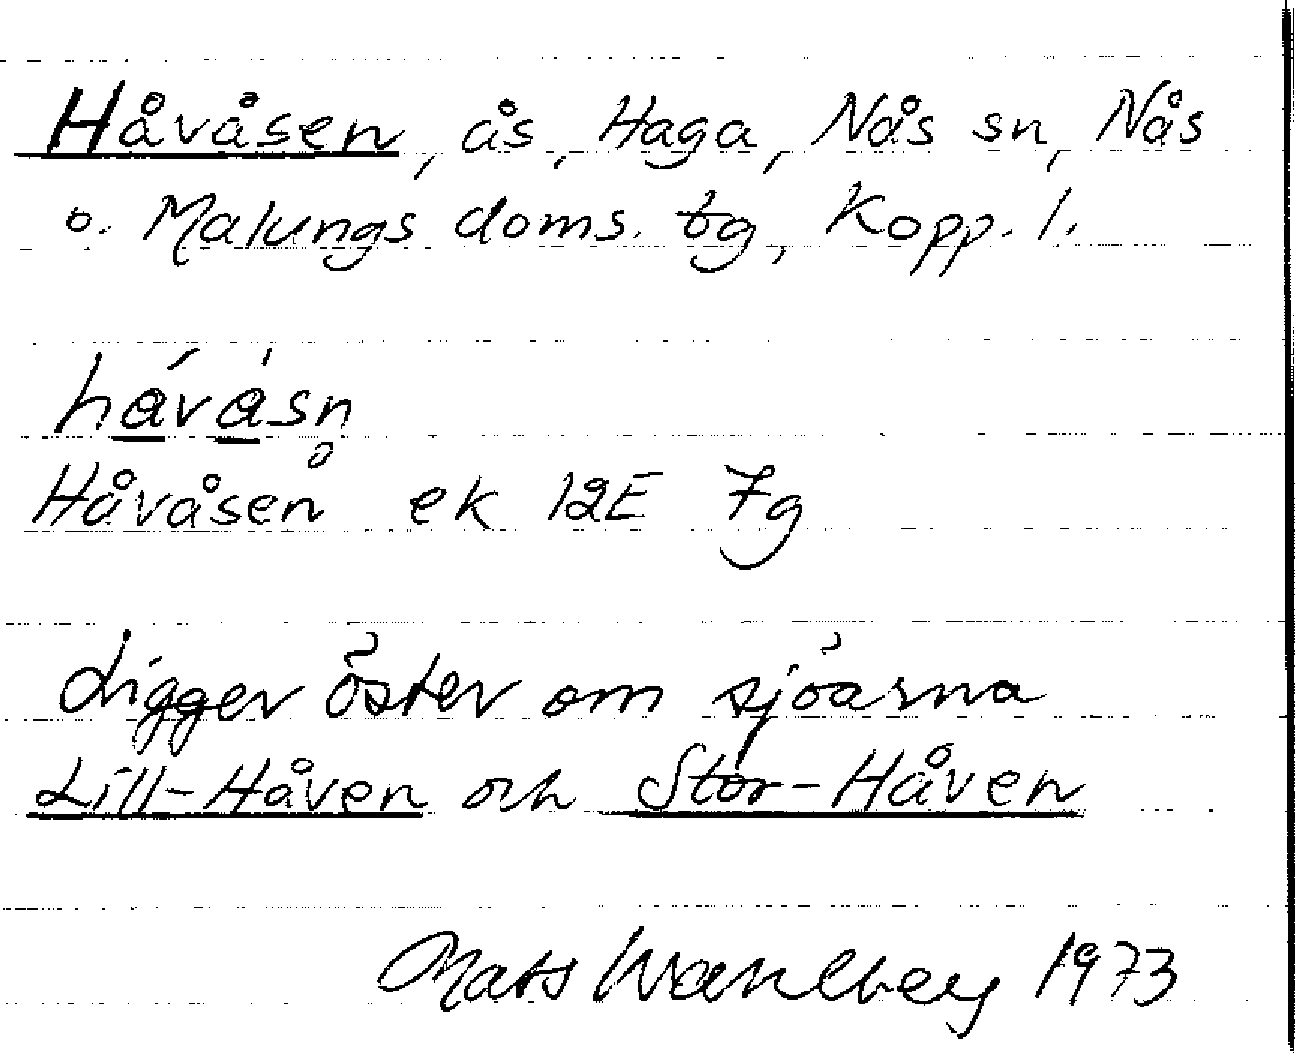 Håvåsen, ås, Haga, Nås sn, Nås
o. Malungs doms. tg, Kopp. l.
há̱vá̱sn̥
Håvåsen ek 12E 7g
Ligger öster om sjöarna
Lill-Håven och Stor-Håven
Mats Wahlberg 1973